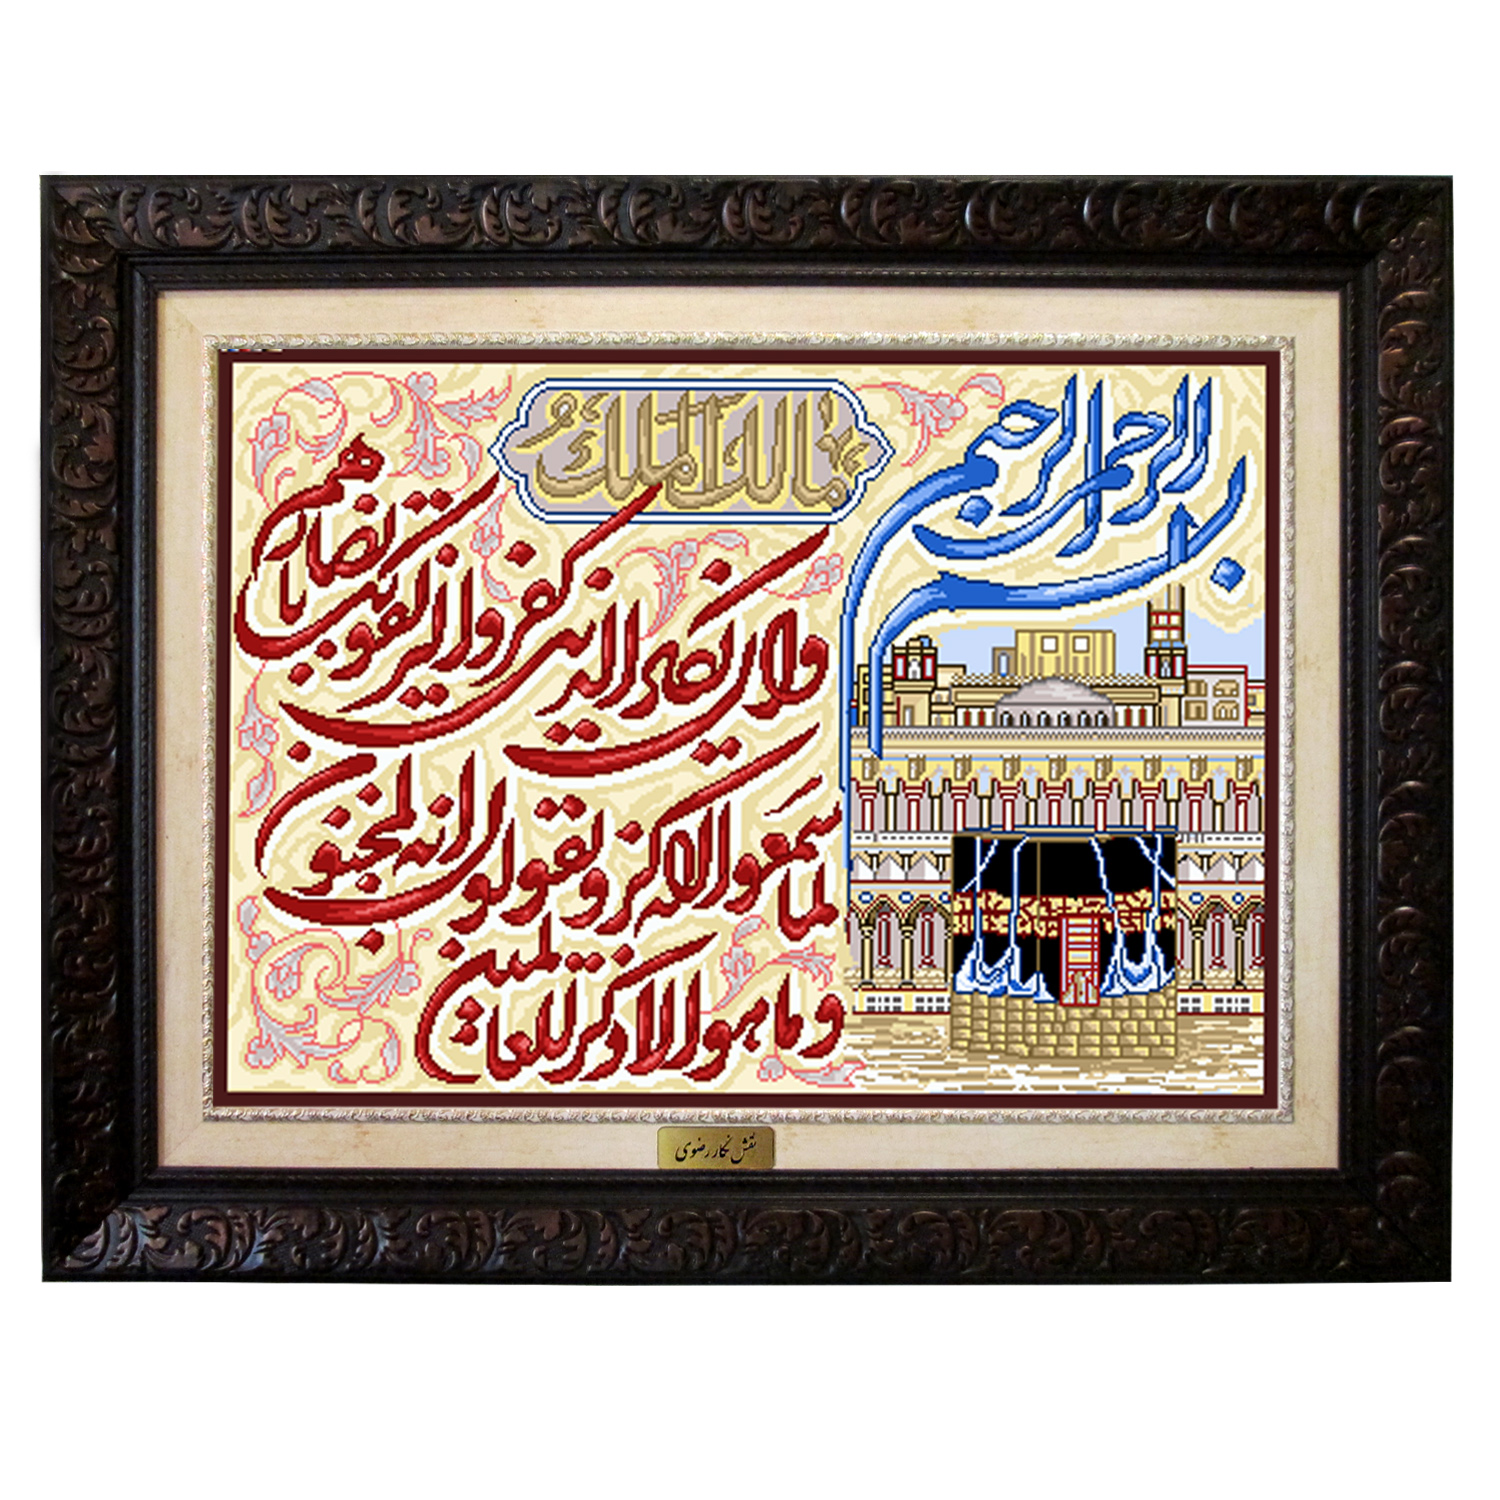 بسم الله الرحمن الرحیم
یا مالک الملک
وان یکاد الذین کفروا لیزلقونک بابصارهم
لما سمعوا الذکر و یقولون انه لمجنون
و ما هو الا ذکر للعالمین
نقش نگار رضوی